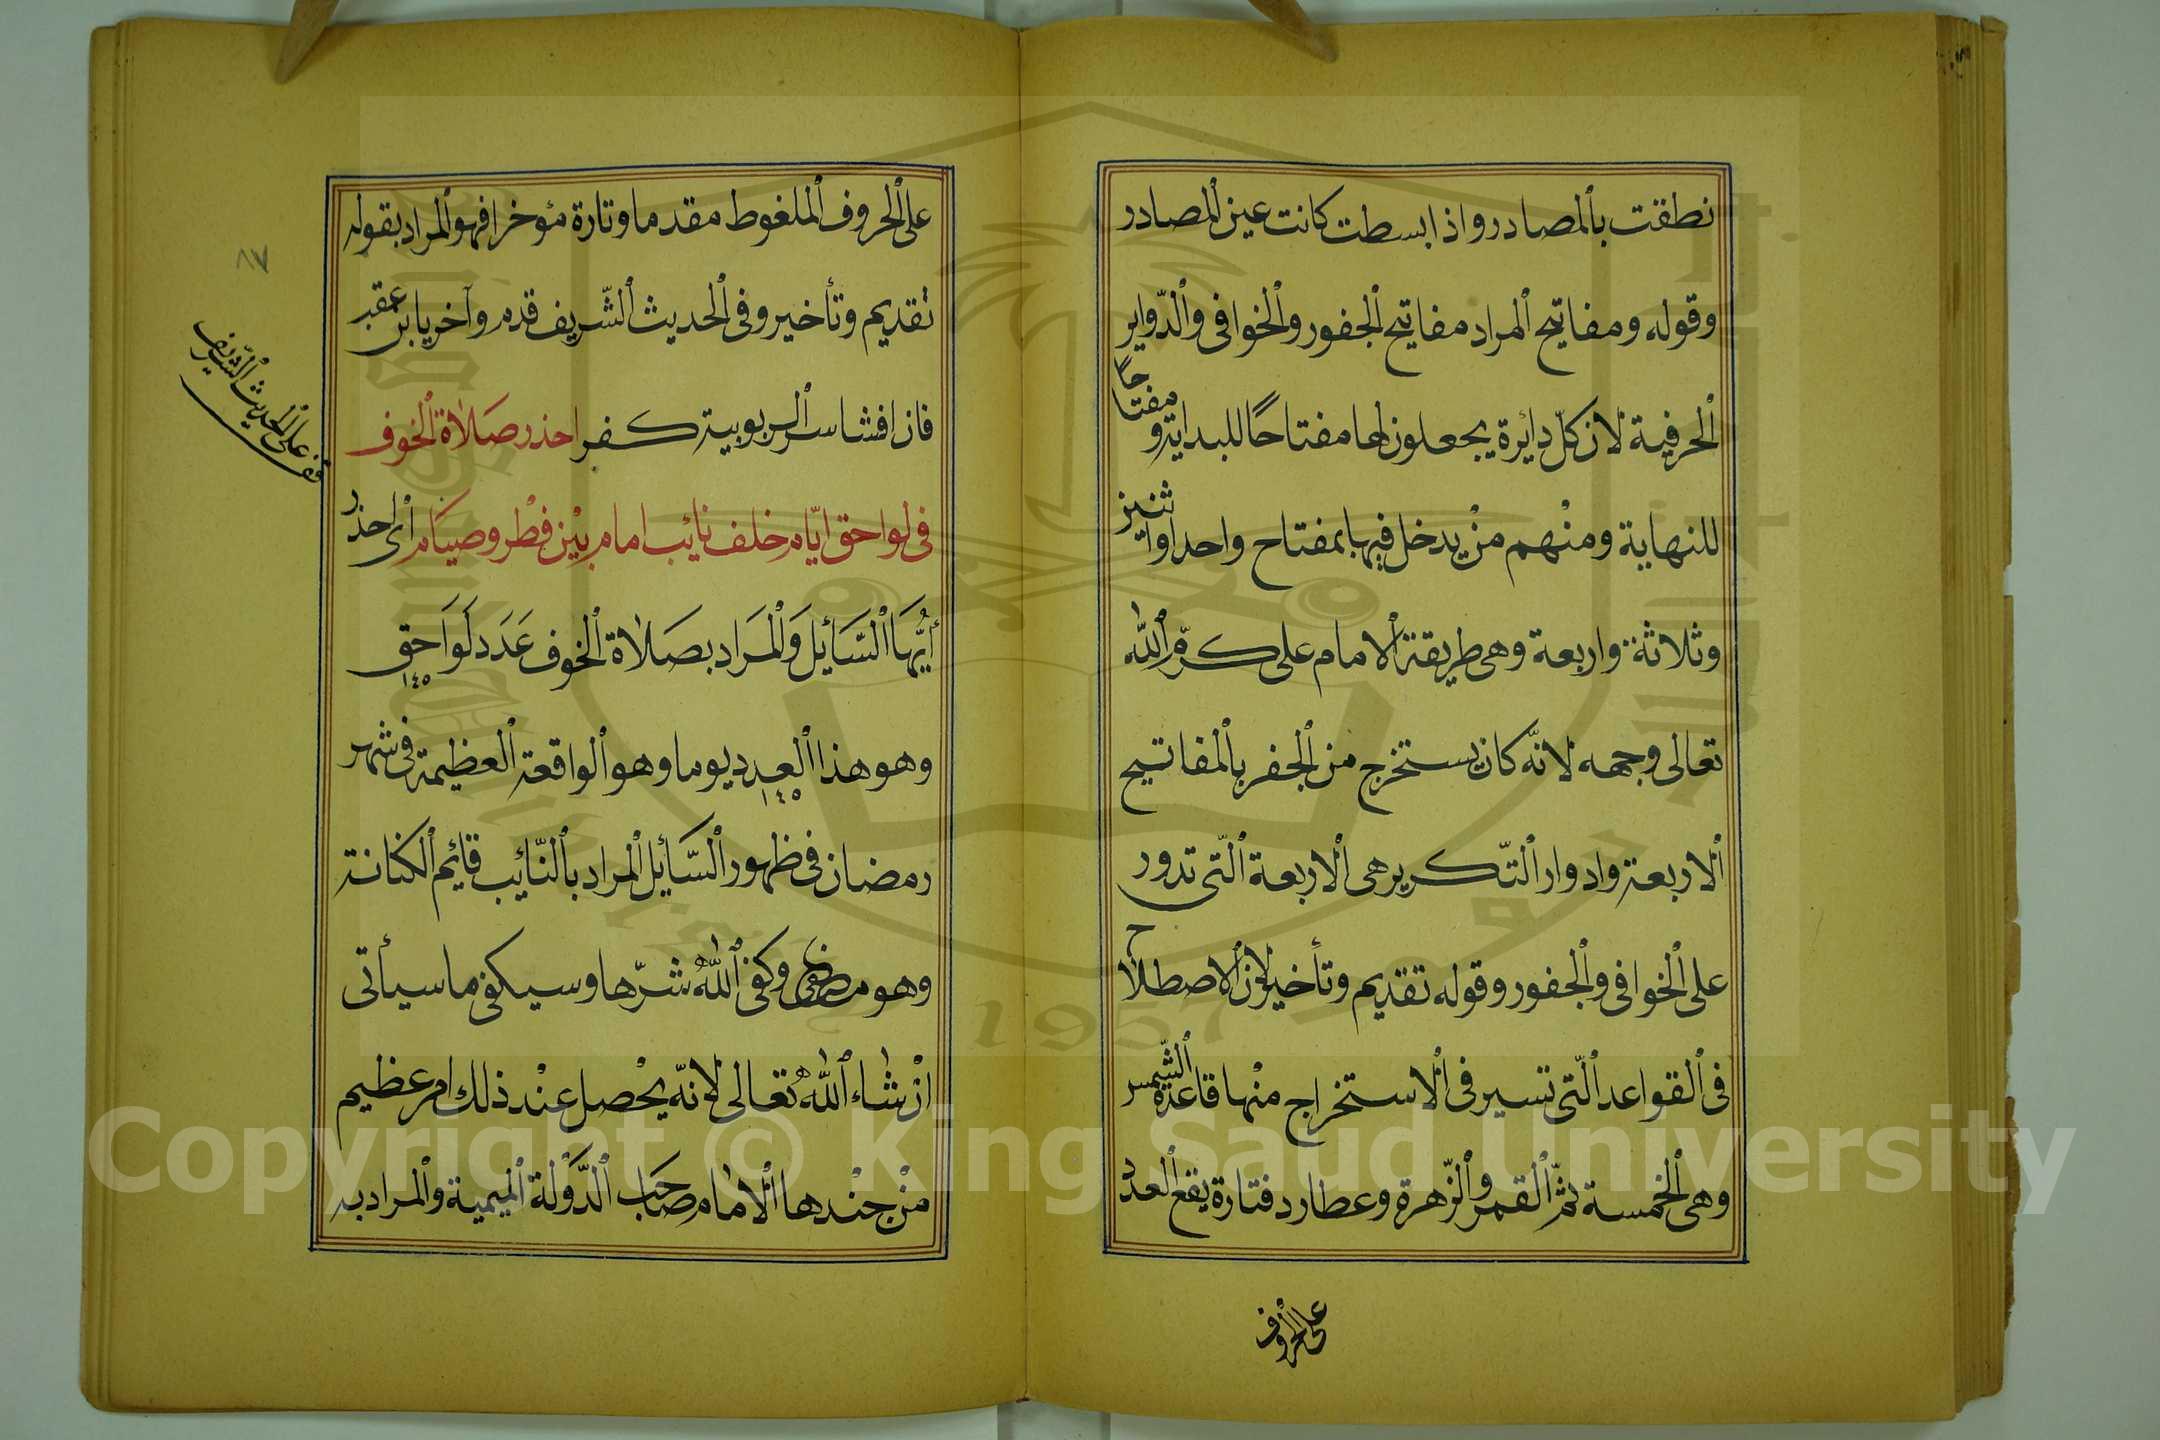 نطقت بالمصادر واذا بسطت كانت عين المصادر
وقوله ومفاتيح المراد مفاتيح الجفور والخوافى والدّواير
الحرفية لان كلّ دايرة يجعلون لها مفتاحًا للبداية ومفتاحًا
للنهاية ومنْهم منْ يدخل فيها بمفتاح واحد او اثنين
وثلاثة واربعة وهى طريقة الامام على كرّم اللّه
تعالى وجهه لانّه كان يستخرج من الجفر بالمفاتيح
الاربعة وادوار التّكرير هى الاربعة الّتى تدور
على الخوافى والجفور وقوله تقديم وتأخير لان الاصطلاح
فى القواعد الّتى تسير فى الاستخراج منْها قاعدة الشّمس
وهى الخمسة ثمّ القمر والزّهرة وعطارد فتارة يقع العدد
على الحروف
على الحروف الملغوط مقدما وتارة مؤخرا فهو المراد بقوله
تقديم وتأخير وفى الحديث الشّريف قدم وآخر يا بن عمقبر
فان افشا سر الربوبية كفر احذر صَلاة الخوف
فى لواحق ايّام خلف نائب امام بيْن فطْر وصيَام أى احذر
أيُّهَا السَّائل وَالْمَراد بصَلاة الخوف عَدَد لَوَاحق
١٤٥
وهو هذا العدد يوما وهو الواقعة العظيمة فى شهر
١٤٥
رمضان فى ظهور السَّائل المراد بالنّائب قائم الكنانة
وهو مصطفى وكفى اللّهُ شرّها وسيكفى ما سيأتى
انْ شاء اللّهُ تعالى لانّه يحْصل عنْد ذلك امر عظيم
منْ جنْدها الامام صَاحب الدَّوْلة الميمية والمراد به
٨٧
قف على الحديث الشّريف
Copyright © King Saud University
1957